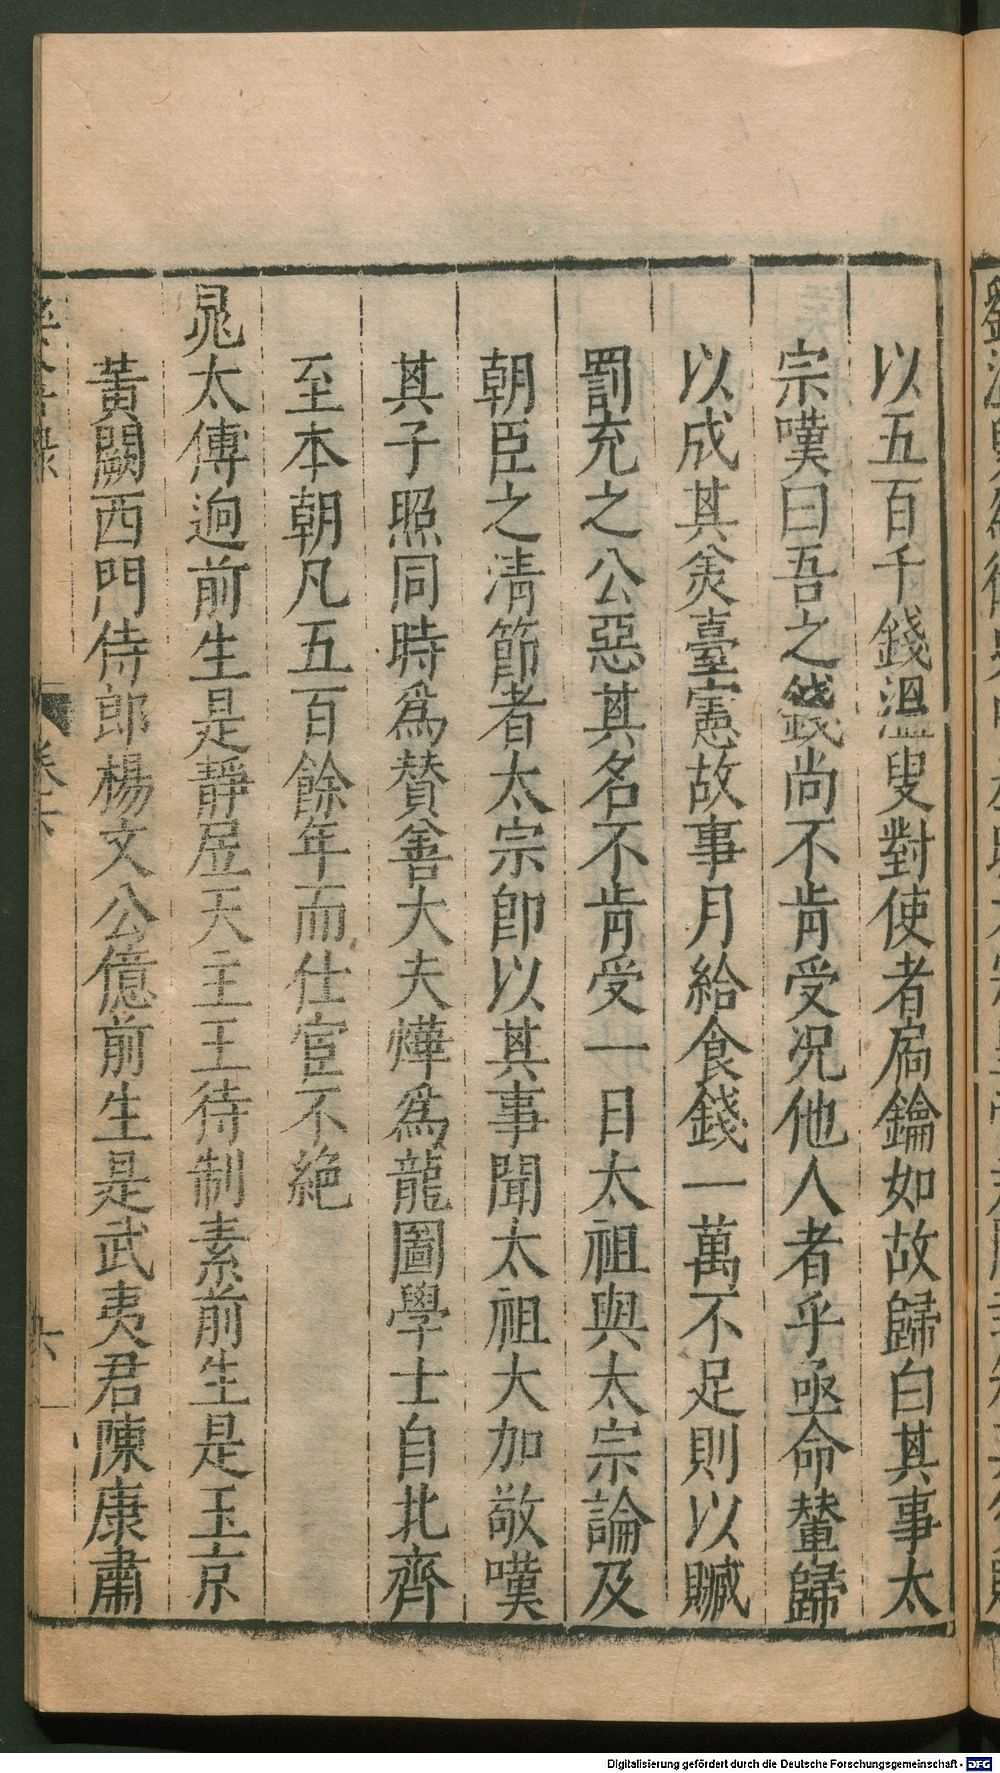 以五百千錢溫叟對使者扄鑰如故歸白其事太
宗嘆曰吾之錢尚不肯受况他人者乎亟命輦歸
以成其羙臺憲故事月給食錢一萬不足則以贓
罰充之公惡其名不肯受一日太祖與太宗論及
朝臣之清節者太宗卽以其事聞太祖大加敬嘆
其子照同時爲賛善大夫燁爲龍圖學士自北齊
至本朝凡五百餘年而仕宦不絕
晁太傅逈前生是靜居天主王待制素前生是玉京
黃闕西門侍郎楊文公億前生是武夷君陳康肅
卷六
六
Digitalisierung gefördert durch die Deutsche Forschungsgemeinschaft - DFG